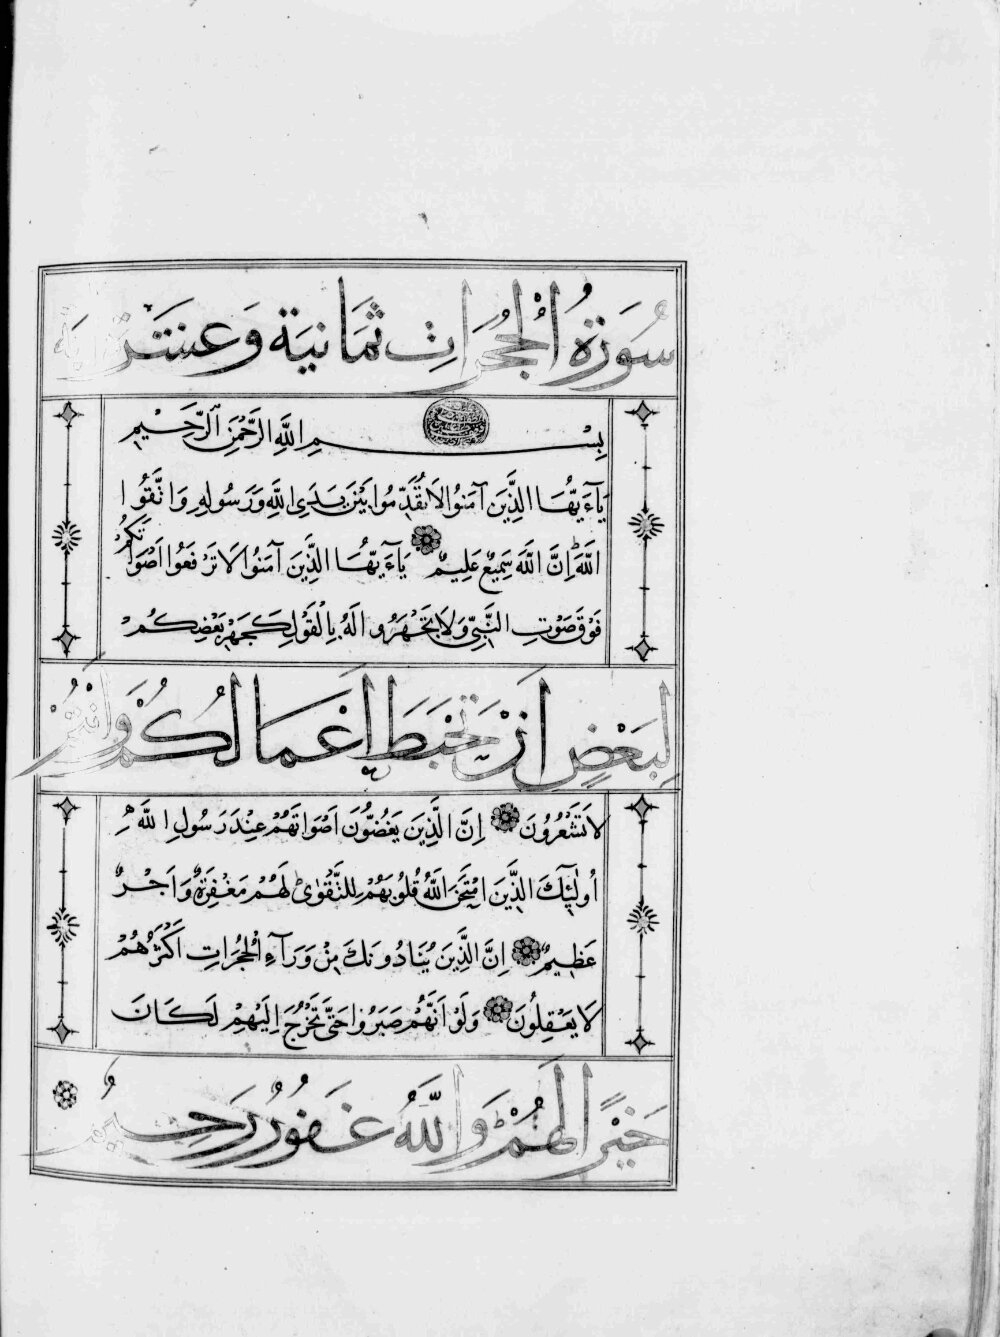 سُورَةُ الْحُجُرَاتِ ثَمَانِيَة وَعَشَر
بِسْمِ اللَّهِ الرَّحْمَنِ الرَّحِيمِ
يَآءَيُّهَا الَّذِينَ آمَنُوا لَا تُقَدِّمُوا بَيْنَ يَدَيِ اللَّهِ وَرَسُولِهِ وَاتَّقُوا
اللَّهَ إِنَّ اللَّهَ سَمِيعٌ عَلِيمٌ يَآءَيُّهَا الَّذِينَ آمَنُوا لَا تَرْفَعُوا أَصْوَاتَكُمْ
فَوْقَ صَوْتِ النَّبِيِّ وَلَا تَجْهَرُوا لَهُ بِالْقَوْلِ كَجَهْرِ بَعْضِكُمْ
لِبَعْضٍ أَنْ تَحْبَطَ أَعْمَالُكُمْ وَأَنْتُمْ
لَا تَشْعُرُونَ إِنَّ الَّذِينَ يَغُضُّونَ أَصْوَاتَهُمْ عِنْدَ رَسُولِ اللَّهِ
أُولَٰئِكَ الَّذِينَ امْتَحَنَ اللَّهُ قُلُوبَهُمْ لِلتَّقْوَىٰ لَهُمْ مَغْفِرَةٌ وَأَجْرٌ
عَظِيمٌ إِنَّ الَّذِينَ يُنَادُونَكَ مِنْ وَرَآءِ الْحُجُرَاتِ أَكْثَرُهُمْ
لَا يَعْقِلُونَ وَلَوْ أَنَّهُمْ صَبَرُوا حَتَّى تَخْرُجَ إِلَيْهِمْ لَكَانَ
خَيْرًا لَهُمْ وَاللَّهُ غَفُورٌ رَحِيمٌ